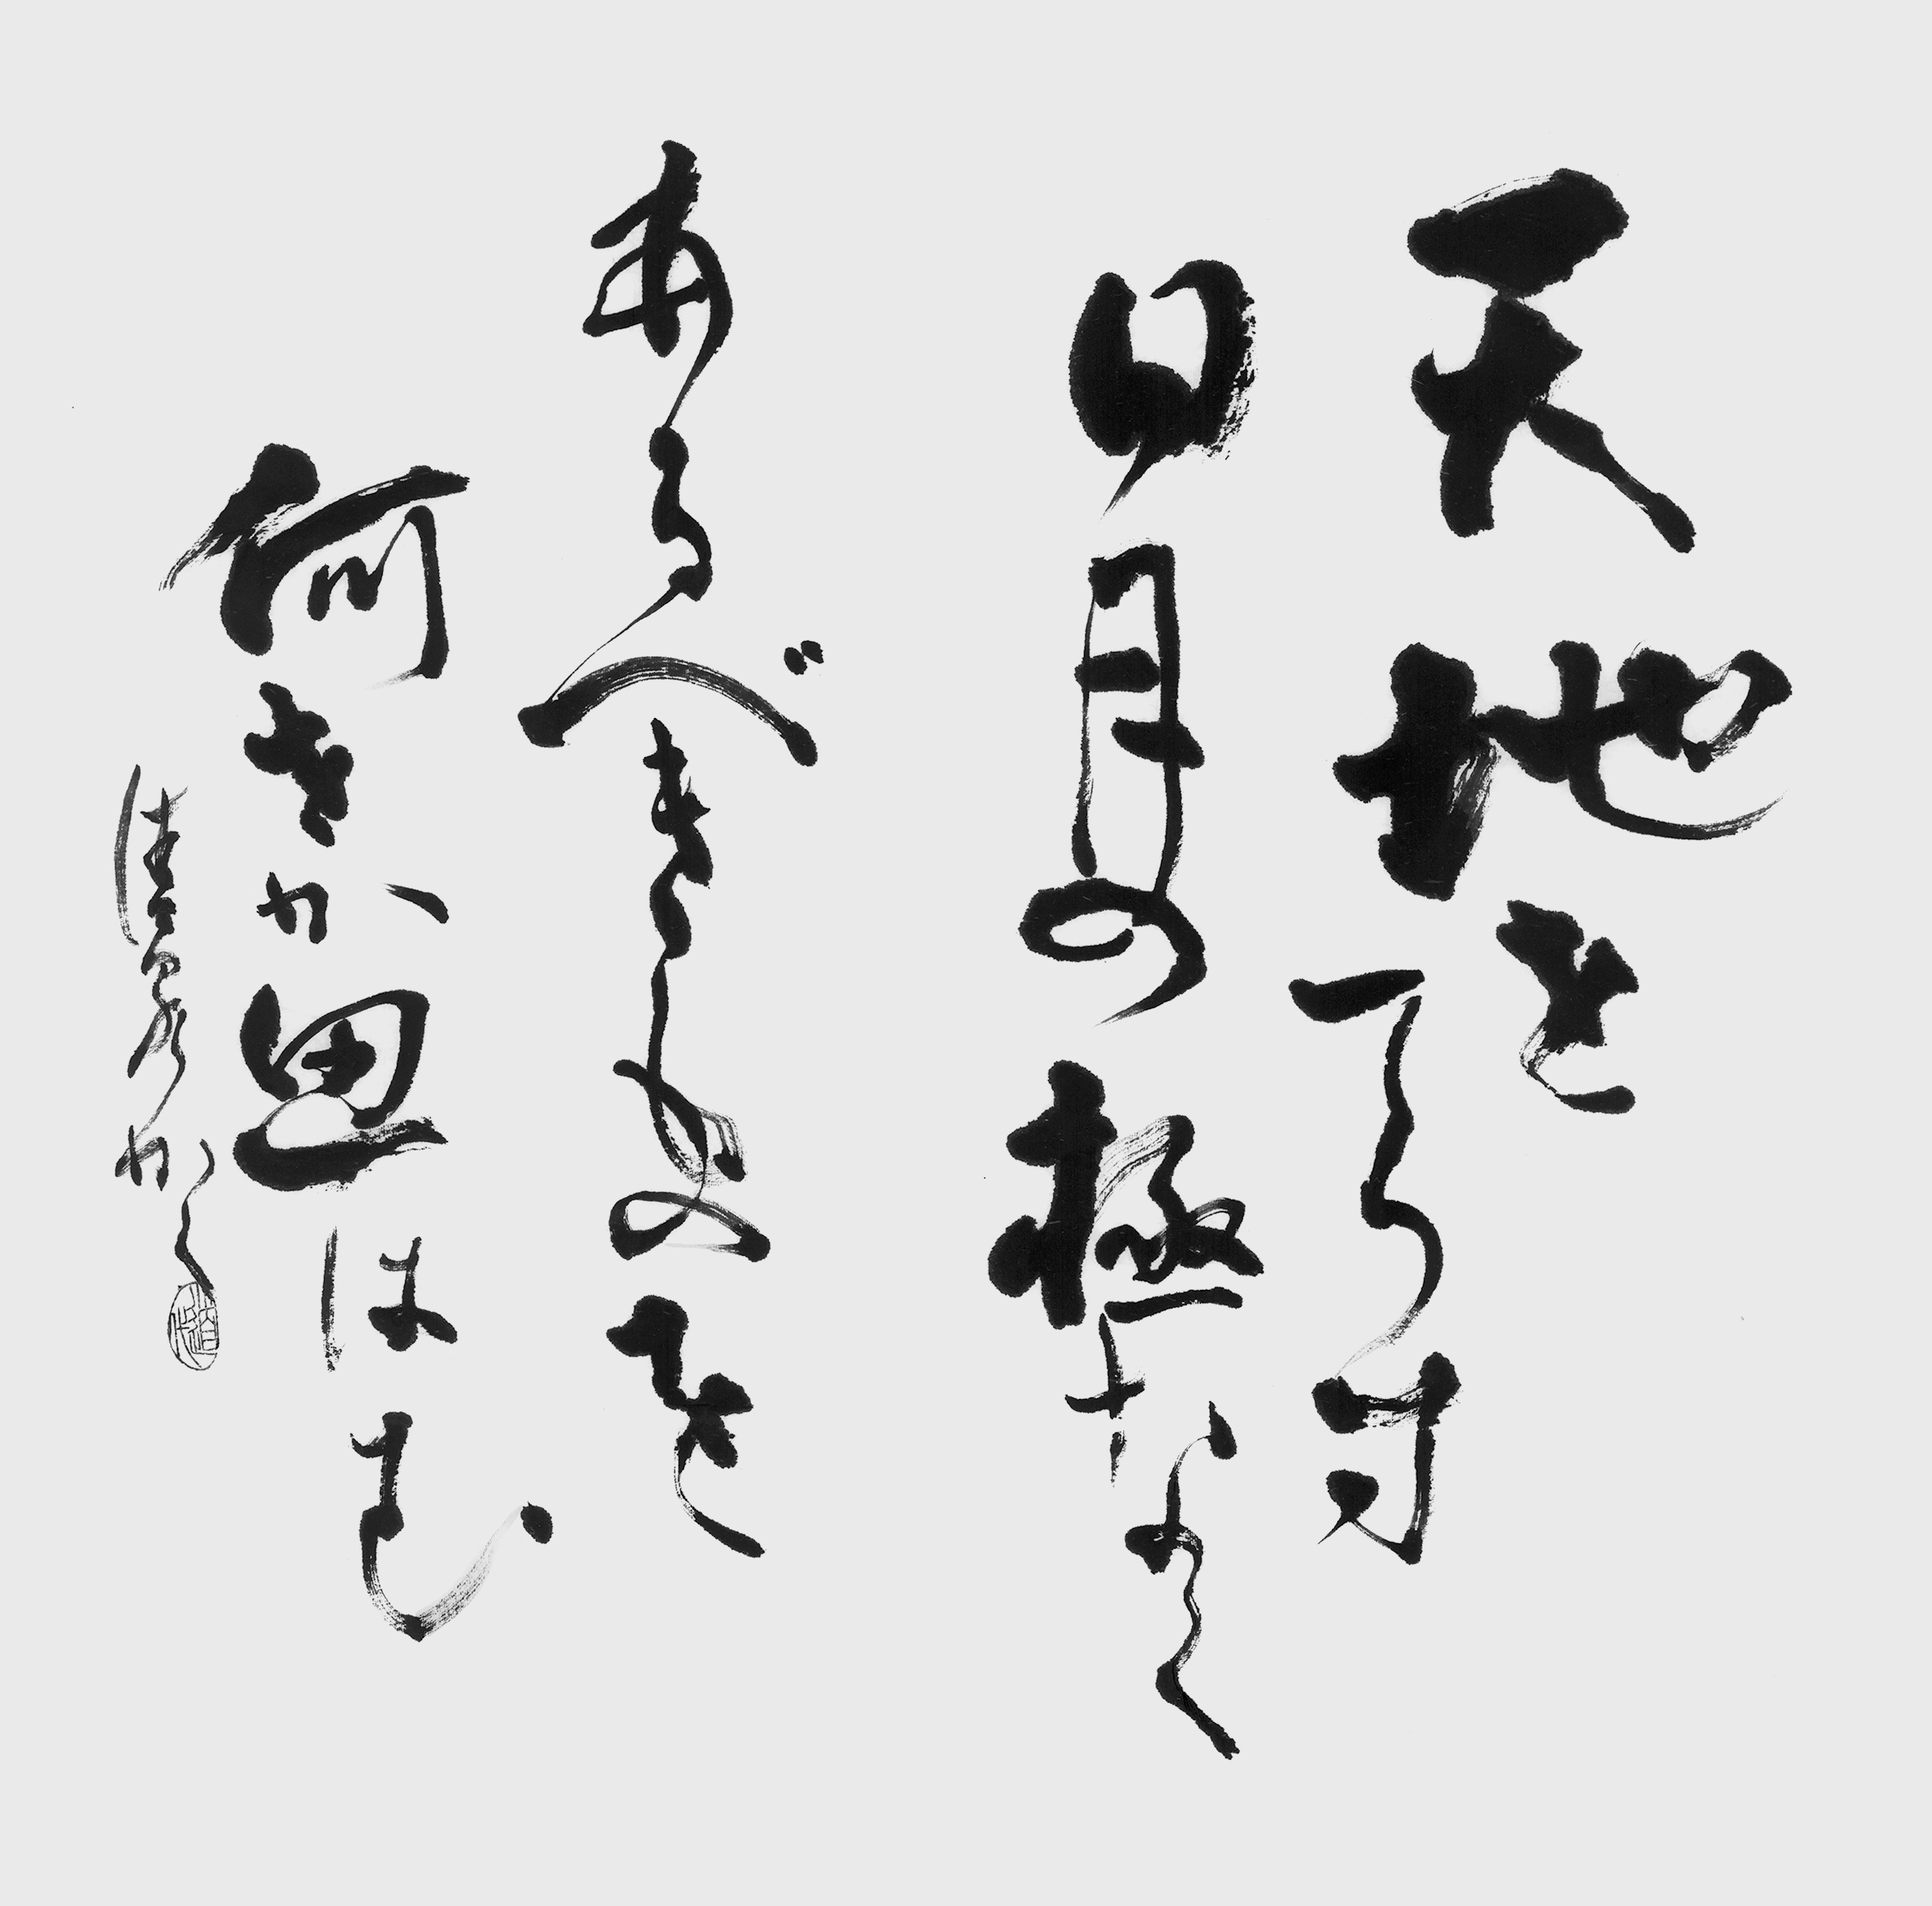 天地をてらす
日月の極なく
あるべきものを
何をか思はむ
清泉かく